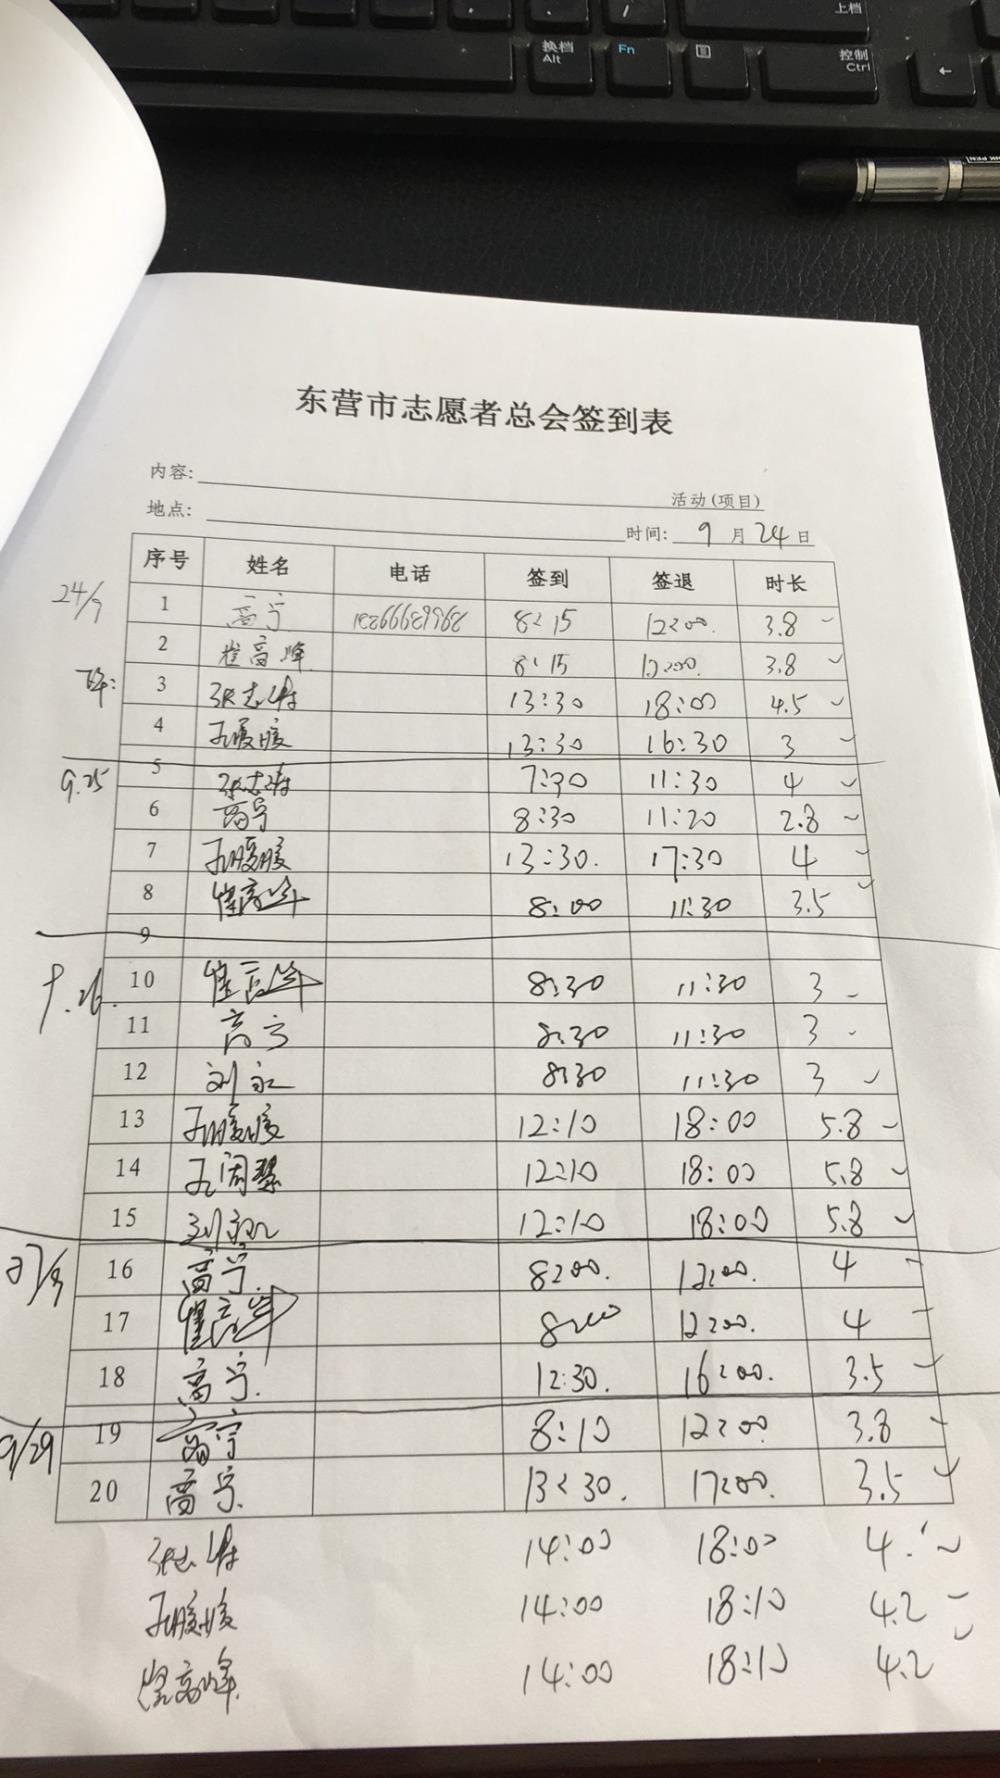 上档
换档
Alt
Fn
控制
Ctrl
东营市志愿者总会签到表
内容: 活动(项目)
地点: 时间: 9 月 24 日
序号 姓名 电话 签到 签退 时长
24/9 1 高宁 8:15 12:00. 3.8
2 崔高峰 8:15 12:00. 3.8
3 13:30 18:00 4.5
4 13:30 16:30 3
9.25 5 7:30 11:30 4
6 高宁 8:30 11:20 2.8
7 13:30. 17:30 4
8 崔高峰 8:00 11:30 3.5
9
9.26. 10 崔高峰 8:30 11:30 3
11 高宁 8:30 11:30 3
12 8:30 11:30 3
13 12:10 18:00 5.8
14 12:10 18:00 5.8
15 12:10 18:00 5.8
27/9 16 高宁. 8:00. 12:00. 4
17 崔高峰 8:00 12:00. 4
18 高宁. 12:30. 16:00. 3.5
9/29 19 高宁 8:10 12:00 3.8
20 高宁. 13:30. 17:00. 3.5
14:00 18:00 4.
14:00 18:10 4.2
崔高峰. 14:00 18:10 4.2